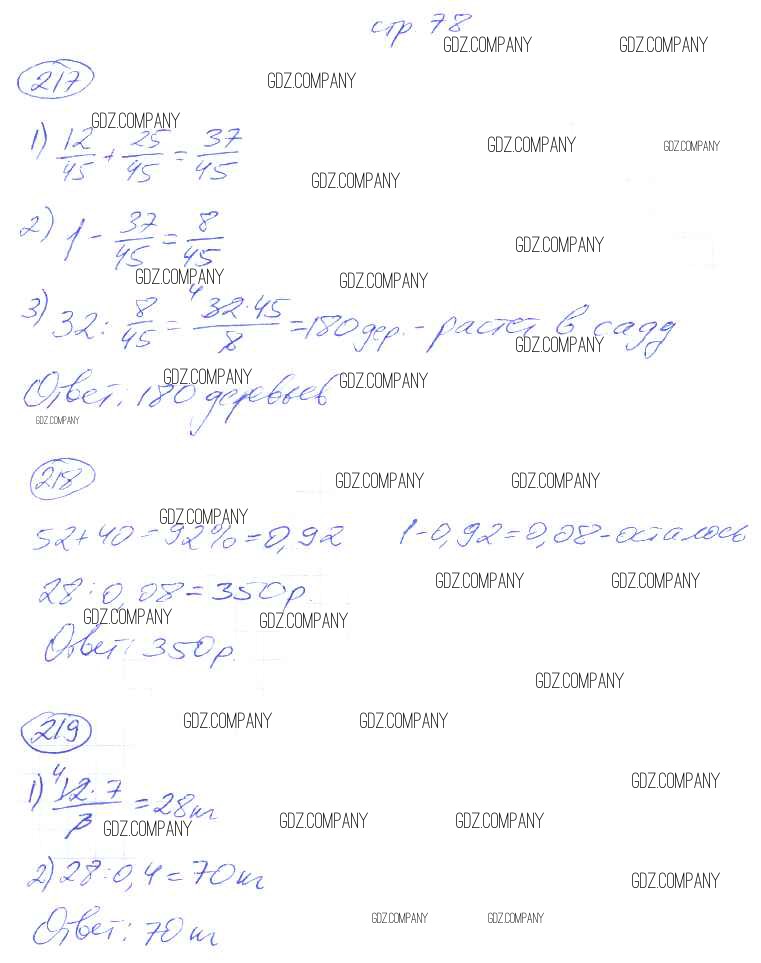 стр 78
GDZ.COMPANY GDZ.COMPANY
217 GDZ.COMPANY
GDZ.COMPANY
1) 12/45 + 25/45 = 37/45 GDZ.COMPANY GDZ.COMPANY
GDZ.COMPANY
2) 1 - 37/45 = 8/45 GDZ.COMPANY
GDZ.COMPANY GDZ.COMPANY
3) 32 : 8/45 = 4 32·45/8 = 180 дер. - растет в саду
GDZ.COMPANY
Ответ: 180 деревьев GDZ.COMPANY GDZ.COMPANY
GDZ.COMPANY
218 GDZ.COMPANY GDZ.COMPANY
GDZ.COMPANY
52+40 = 92% = 0,92 1-0,92=0,08 - осталось
28:0,08=350р. GDZ.COMPANY GDZ.COMPANY
GDZ.COMPANY GDZ.COMPANY
Ответ: 350р.
GDZ.COMPANY
219 GDZ.COMPANY GDZ.COMPANY
GDZ.COMPANY
1) 4 12·7/3 = 28 т
GDZ.COMPANY GDZ.COMPANY GDZ.COMPANY
2) 28:0,4=70 т GDZ.COMPANY
Ответ: 70 т GDZ.COMPANY GDZ.COMPANY